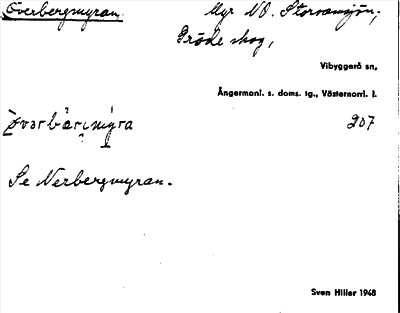 Överbergmyran.
Myr NO. Storvansjön,
Gröde skog,
Vibyggerå sn,
Ångermanl. s. doms. tg., Västernorrl. l.
207
Se Nerbergmyran.
Sven Hiller 1948